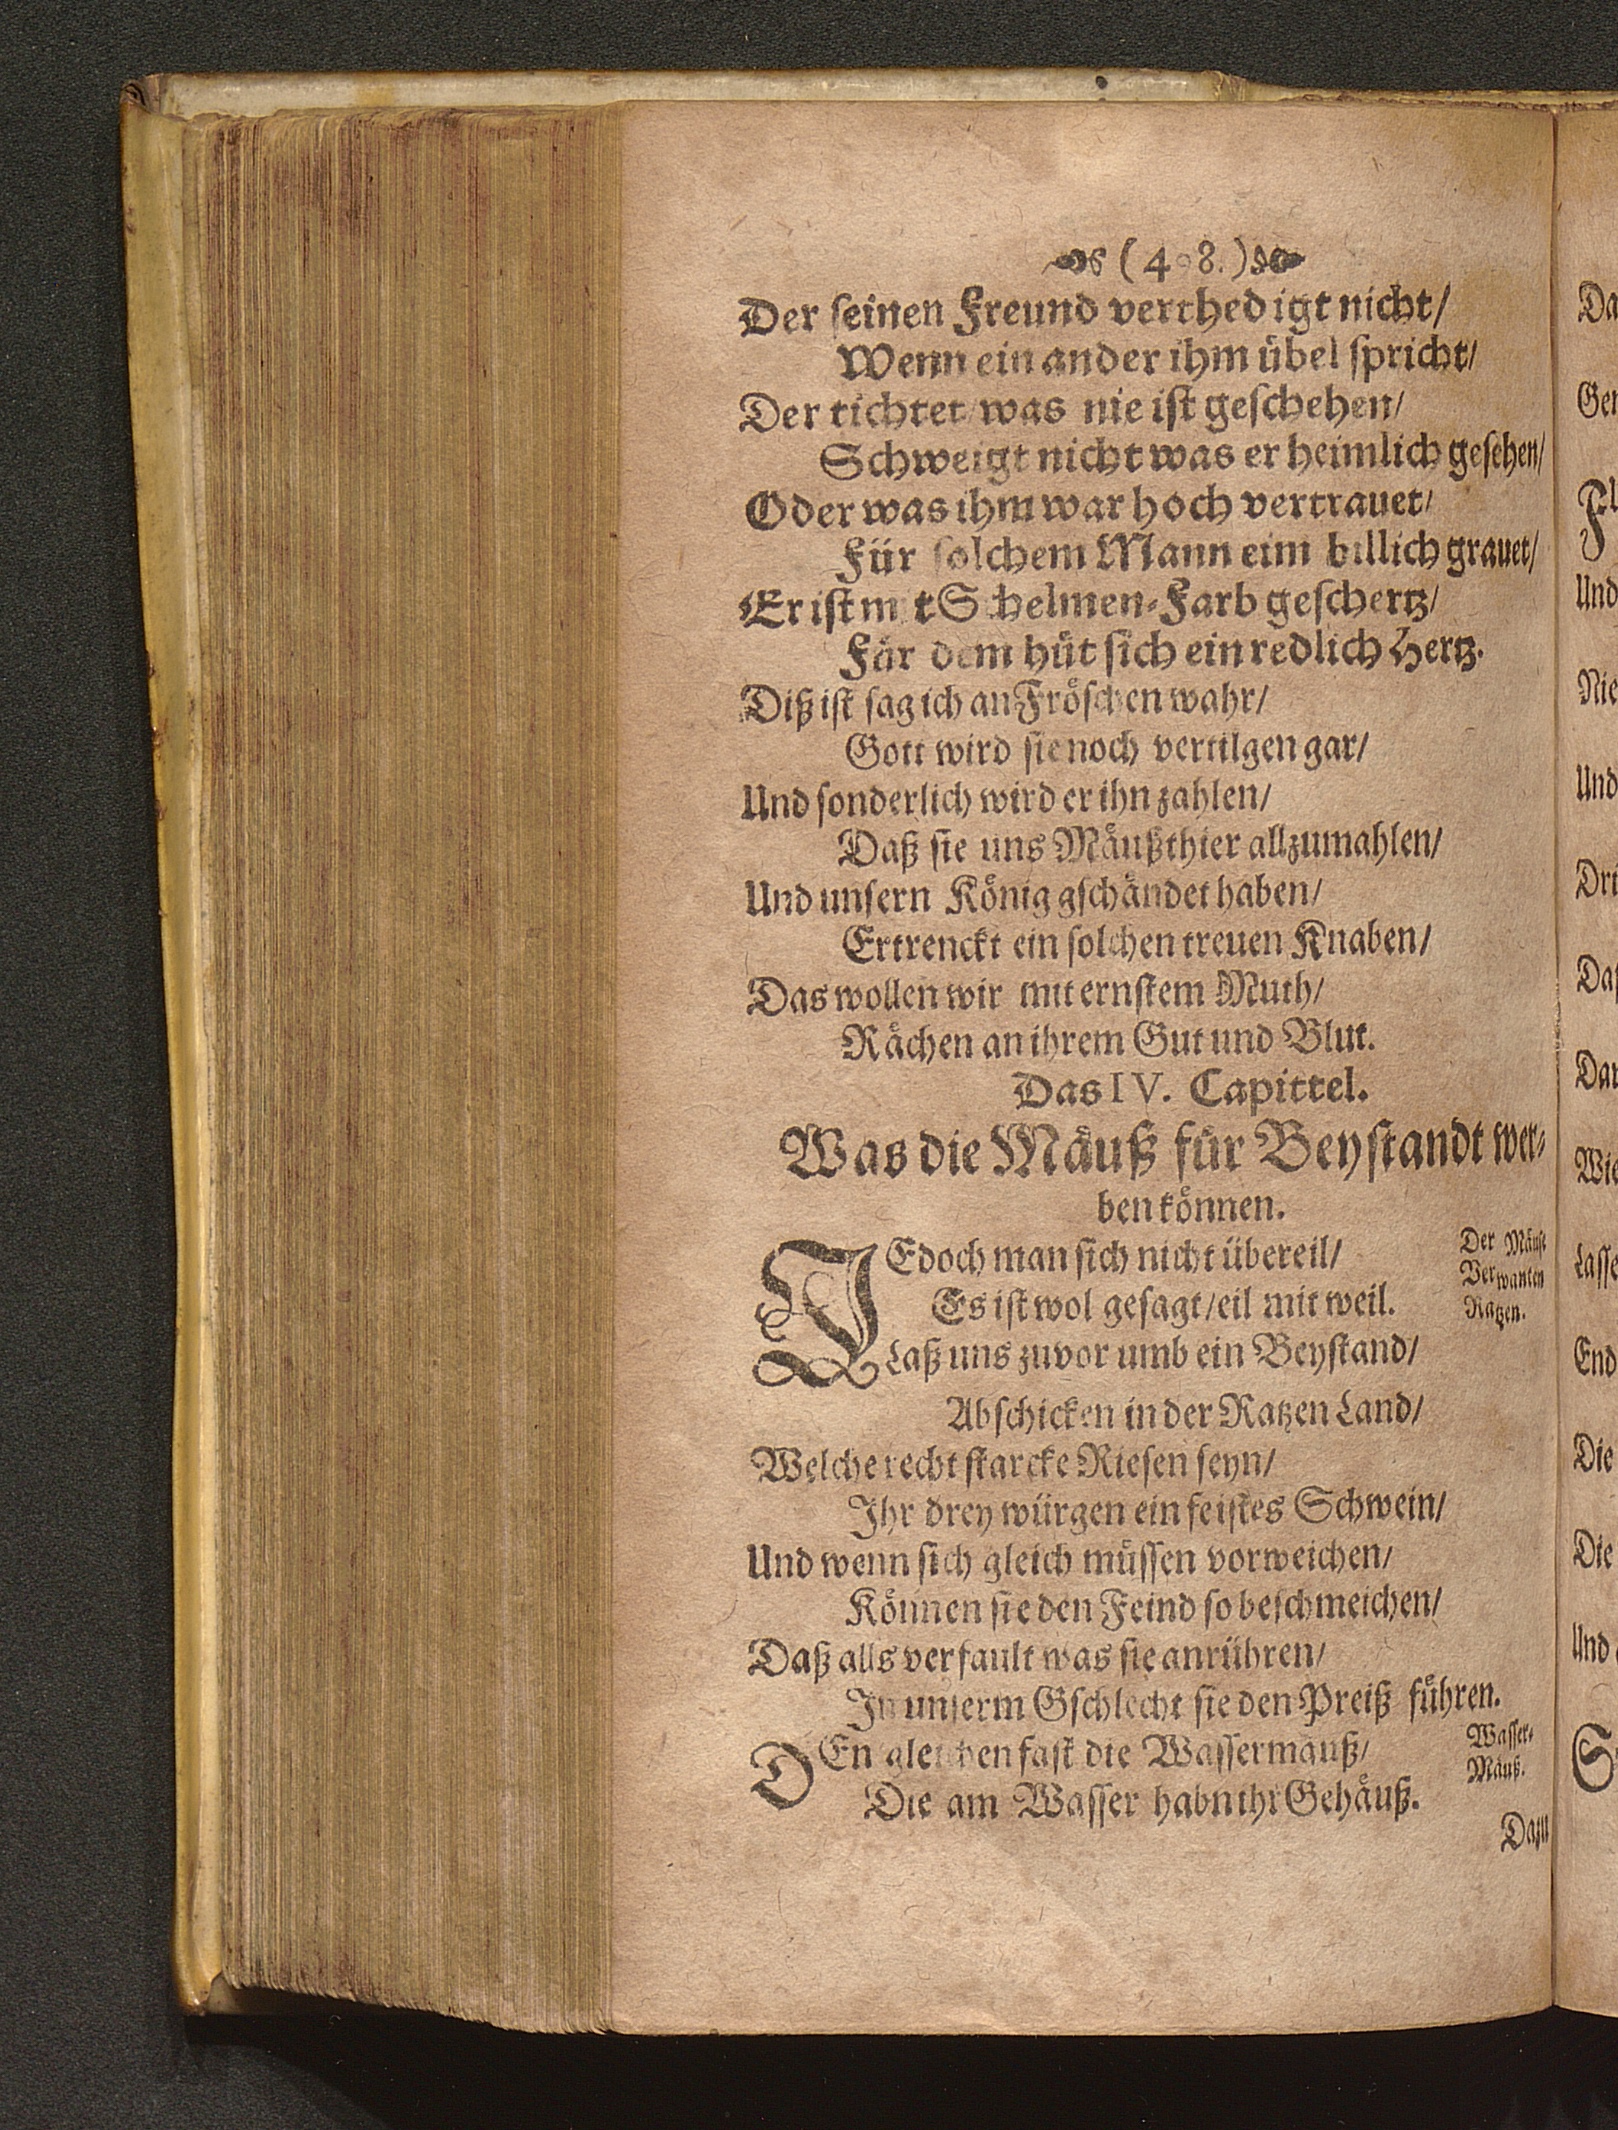 (408.)
Der seinen Freund verthedigt nicht/
Wenn ein ander ihm übel spricht/
Der tichtet/was nie ist geschehen/
Schweigt nicht was er heimlich gesehen/
Oder was ihm war hoch vertrauet/
Für solchem Mann eim billich grauet/
Er ist mit Schelmen-Farb geschertz/
Für dem hüt sich ein redlich Hertz.
Diß ist sag ich an Fröschen wahr/
Gott wird sie noch vertilgen gar/
Und sonderlich wird er ihn zahlen/
Daß sie uns Mäußthier allzumahlen/
Und unsern König gschändet haben/
Ertrenckt ein solchen treuen Knaben/
Das wollen wir mit ernstem Muth/
Rächen an ihrem Gut und Blut.
Das IV. Capittel.
Was die Mäuß für Beystandt wer-
ben können.
JEdoch man sich nicht übereil/
Der Mäuse
Verwanten
Ratzen.
Es ist wol gesagt/eil mit weil.
Laß uns zuvor umb ein Beystand/
Abschicken in der Ratzen Land/
Welche recht starcke Riesen seyn/
Ihr drey würgen ein feistes Schwein/
Und wenn sich gleich müssen vorweichen/
Können sie den Feind so beschmeichen/
Daß alls verfault was sie anrühren/
In unserm Gschlecht sie den Preiß führen.
DEn gleichen fast die Wassermäuß/
Wasser-
Mäuß.
Die am Wasser habn ihr Gehäuß.
Dazu
Da
Ger
Fl
Und
Nie
Und
Ort
Daß
Dar
Wie
Lasse
End
Die
Die
Und
S